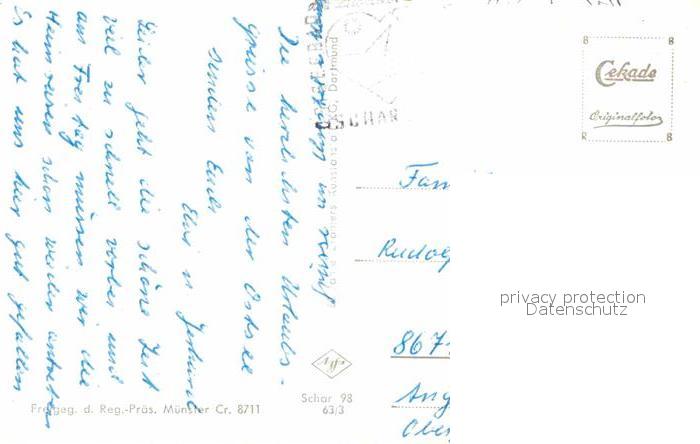 Die herzlichsten Urlaubs-
grüsse von der Ostsee
senden Euch
Elvi u Gerhard
Leider geht die schöne Zeit
viel zu schnell vorbei und
am Freitag müssen wir die
Heimreise schon wieder antreten
Es hat uns hier gut gefallen
SCHAR
KG, Dortmund
Cekade
Originalfoto
Fam
Rudolf
867
Ang
Ober
privacy protection
Datenschutz
Schar 98
63/3
Freigeg. d. Reg.-Präs. Münster Cr. 8711